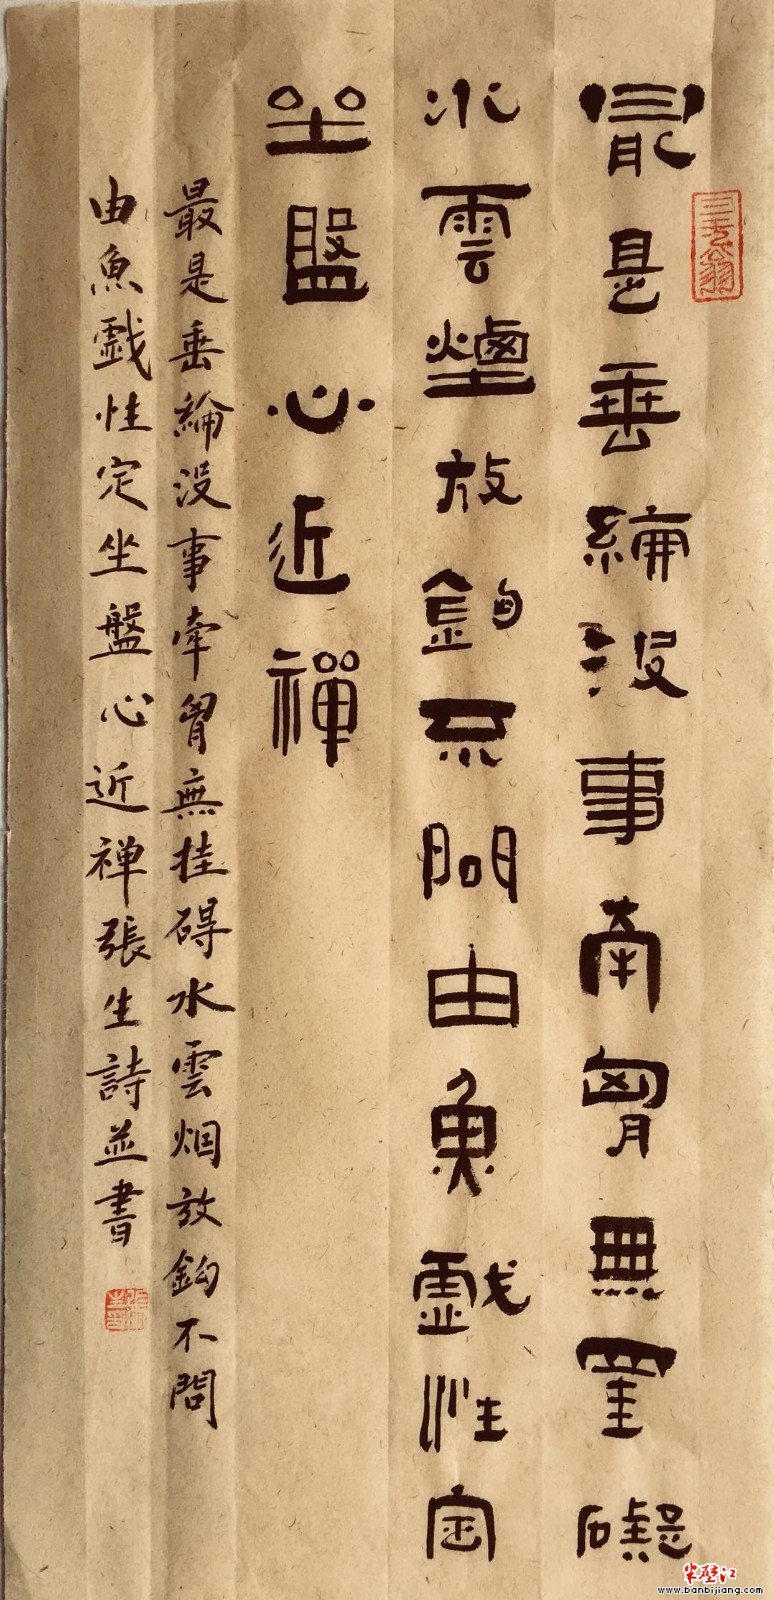 最是垂綸没事牽胷無罣礙
水雲煙放鉤不問由魚戲性定
坐盤心近禪
最是垂綸没事牽胷無挂碍水雲烟放鈎不問
由魚戯性定坐盤心近禅張生詩並書
半壁江
www.banbijiang.com